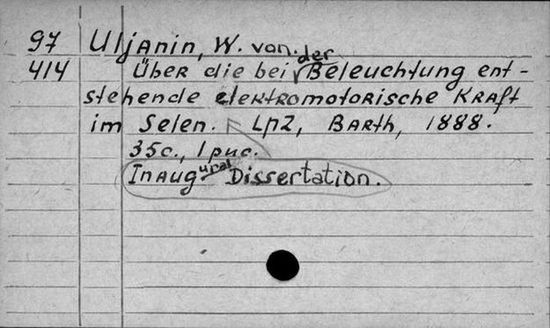 97 Uljanin, W. von.
414 Über die bei der Beleuchtung ent-
stehende elektromotorische Kraft
im Selen. Lpz, Barth, 1888.
35c., 1 рис.
Inaugural Dissertation.